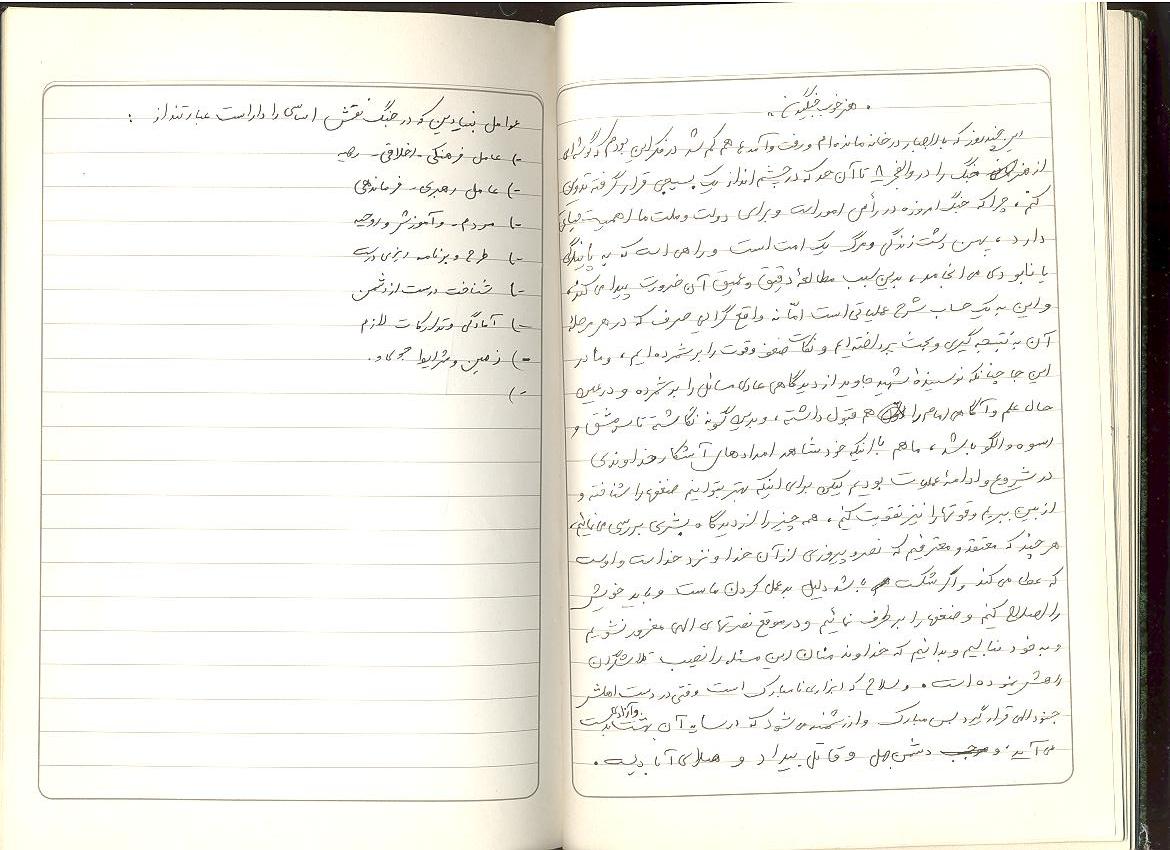 . هنر خوب جنگیدن .
این چند روز که بالاجبار در خانه مانده‌ام و رفت و آمدها هم کم شد در فکر این بودم که گوشه‌ای
از هنر جنگ را در والفجر ۸ تا آن حد که در چشم انداز یک بسیجی قرار گرفته تدوین
کنم ، چرا که جنگ امروزه در رأس امور است و برای دولت و ملت ما اهمیت حیاتی
دارد ، پهن دشت زندگی و مرگ یک امت است و راهی است که به پایندگی
یا نابودی می انجامد ، بدین سبب مطالعهٔ دقیق و عمیق آن ضرورت پیدا می کند ،
و این به یک حساب شرح عملیاتی است امّا نه واقع گرایی صرف که در هر مرحلهٔ
آن به نتیجه گیری و بحث پرداخته‌ایم و نکات ضعف و قوت را برشمرده‌ایم ، و ما در
این جا چنانکه نویسندهٔ شهید جاوید از دیدگاهی عادی مسائل را برشمرده و در عین
حال علم و آگاهی امام را هم قبول داشته ، و بدین گونه نگاشته تا سرمشق و
اسوه و الگو باشد ، ما هم با اینکه خود شاهد امدادهای آشکار خداوندی
در شروع و ادامهٔ عملیات بودیم لیکن برای اینکه بهتر بتوانیم ضعفها را شناخته و
از بین ببریم و قوتها را نیز تقویت کنیم ، همه چیز را از دیدگاه بشری بررسی می نمائیم ،
هر چند که معتقد و معترفیم که نصر و پیروزی از آن خدا و نزد خداست و اوست
که عطا می کند و اگر شکست باشد دلیل بد عمل کردن ماست و باید خویش
را اصلاح کنیم و ضعفها را بر طرف نمائیم و در موقع نصرتهای الهی مغرور نشویم
و به خود نبالیم و بدانیم که خداوند منان این مسئله را نصیب تلاشگران
راهش نموده است . و سلاح که ابزاری نامبارک است وقتی در دست اهلش
جنود الهی قرار گیرد بس مبارک و ارزشمند می شود که در سایه آن و آزادی بدست
می آید . و دشمن جهل و قاتل بیداد و آبادیست .
عوامل بنیادین که در جنگ نقش اساسی را داراست عبارتند از :
-) عامل فرهنگی - اخلاقی -
-) عامل رهبری - فرماندهی
-) مردم - و آموزش و روحیه
-) طرح و برنامه ریزی درست
-) شناخت درست از دشمن
-) آمادگی و تدارکات لازم
-) زمین و شرایط جوی و .
-)